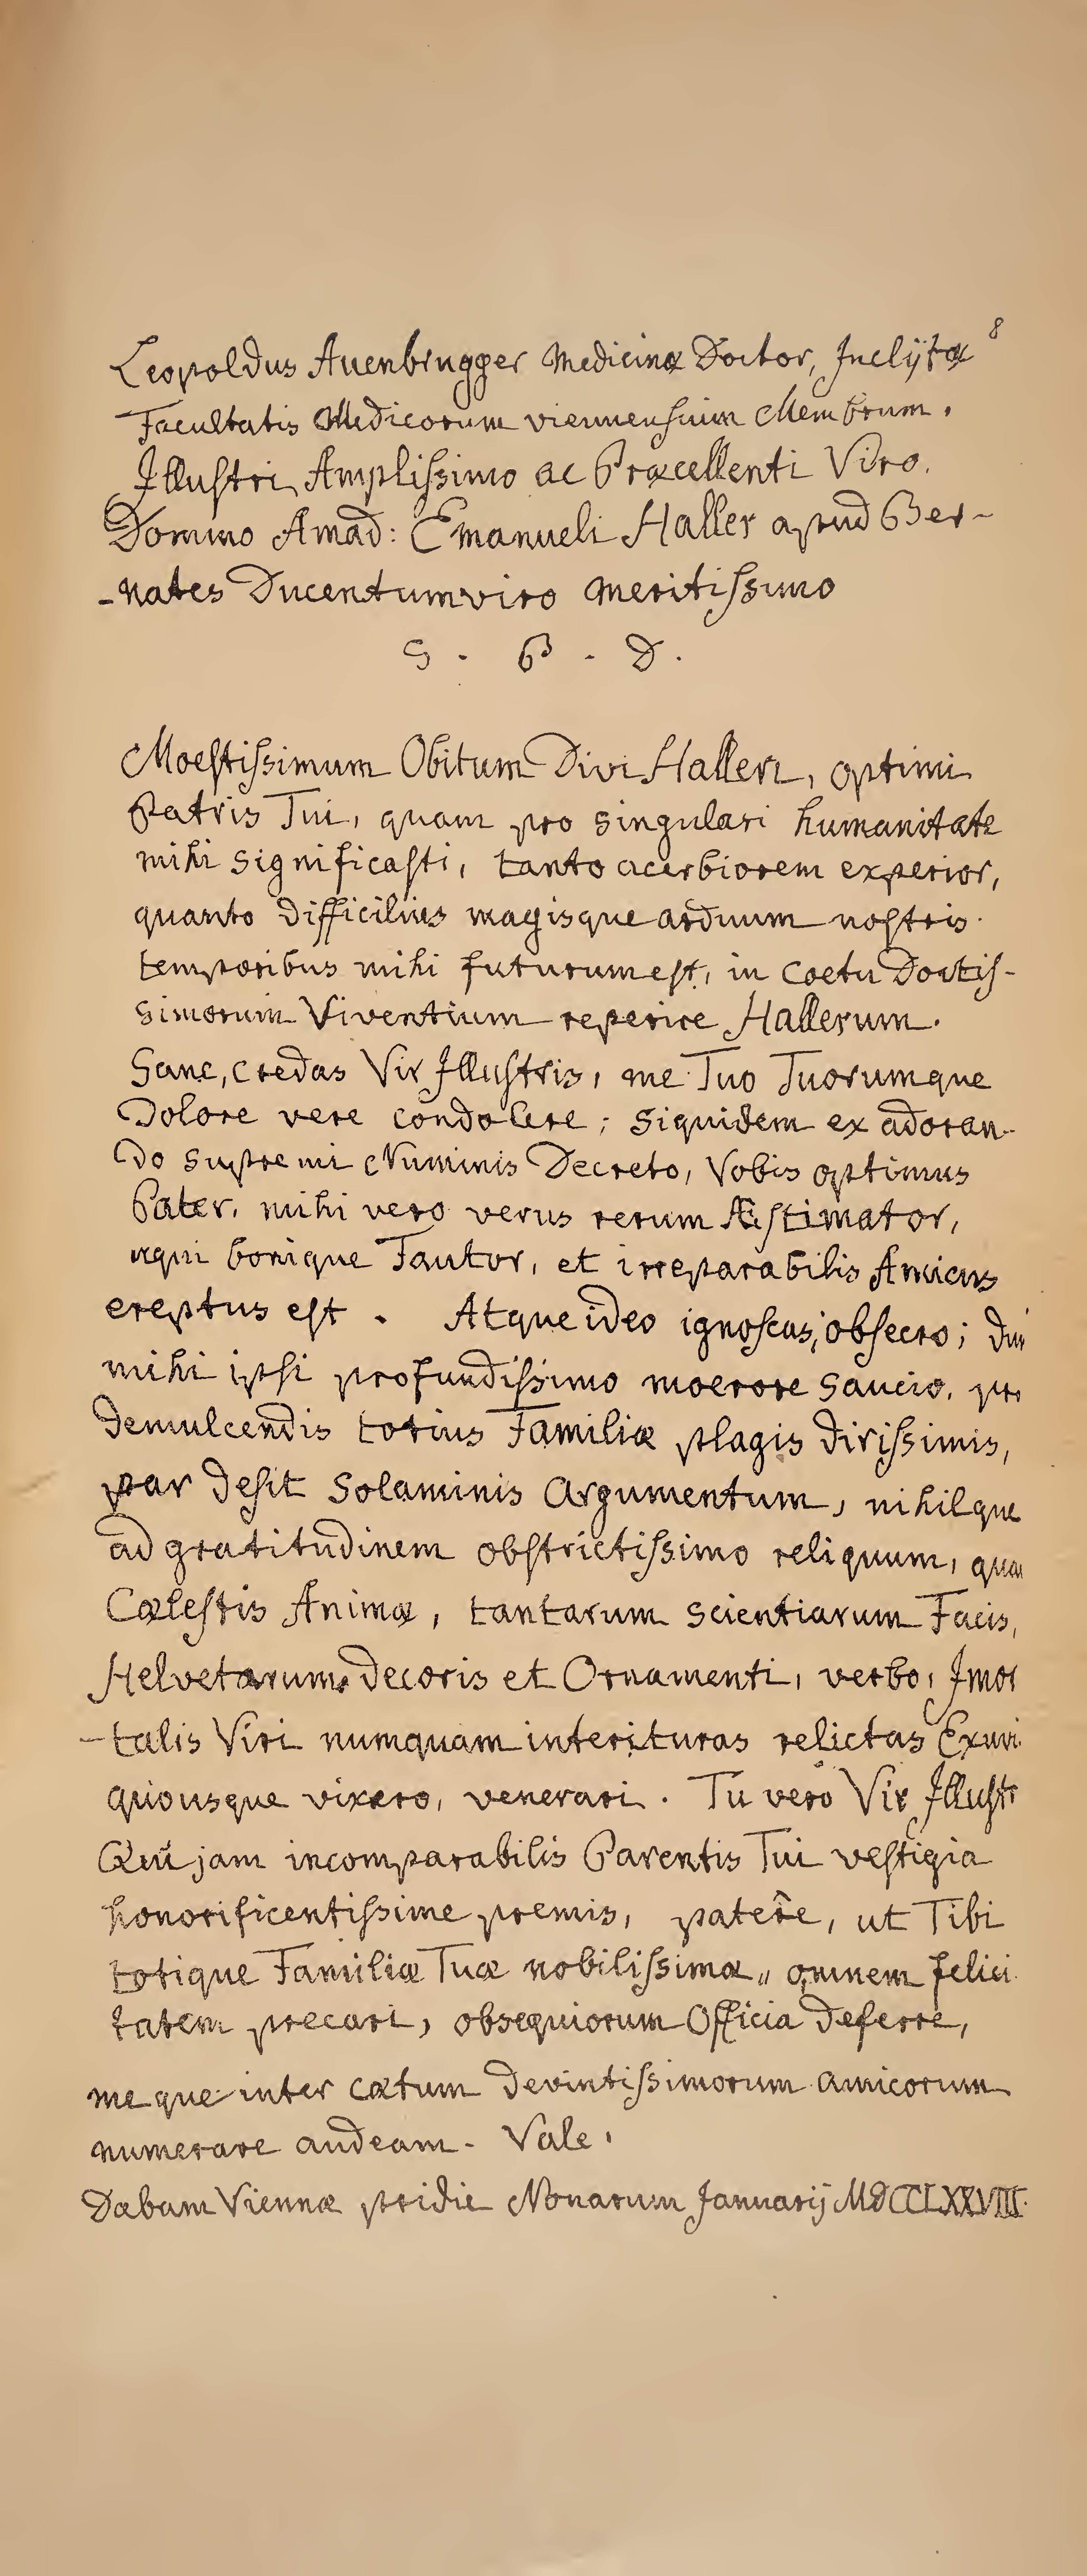 8
Leopoldus Auenbrugger Medicinæ Doctor, Inclÿtæ
Facultatis Medicorum viennensium Membrum.
Illustri, Amplissimo ac Præcellenti Viro.
Domino Amad: Emanueli Haller apud Ber-
-nates Ducentumviro meritissimo
S. P. D.
Moestissimum Obitum Divi Halleri, optimi
Patris Tui, quam pro singulari humanitate
mihi significasti, tanto acerbiorem experior,
quanto difficilius magisque arduum nostris
temporibus mihi futurum est, in coetu Doctis-
simorum Viventium reperire Hallerum.
Sane, credas Vir Illustris, me Tuo Tuorumque
Dolore vere condolere; siquidem ex adoran-
do supremi Numinis Decreto, Vobis optimus
Pater, mihi vero verus rerum Æstimator,
æqui bonique Fautor, et irreparabilis Amicus
ereptus est. Atque ideo ignoscas, obsecro;
mihi ipsi profundissimo moerore saucio, pro
demulcendis totius Familiæ plagis dirissimis,
par desit Solaminis Argumentum, nihilque
ad gratitudinem obstrictissimo reliquum,
Cælestis Animæ, tantarum scientiarum Facis,
Helvetarum decoris et Ornamenti, verbo, Imor
-talis Viri numquam interituras relictas Exuvi
quousque vixero, venerari. Tu vero Vir Illustr
Qui jam incomparabilis Parentis Tui vestigia
honorificentissime premis, patêre, ut Tibi
totique Familiæ Tuæ nobilissimæ,, omnem felici
tatem precari, obsequiorum Officia deferre,
meque inter cætum devintissimorum amicorum
numerare audeam. Vale.
Dabam Viennæ pridie Nonarum Januarij MDCCLXXVIII.